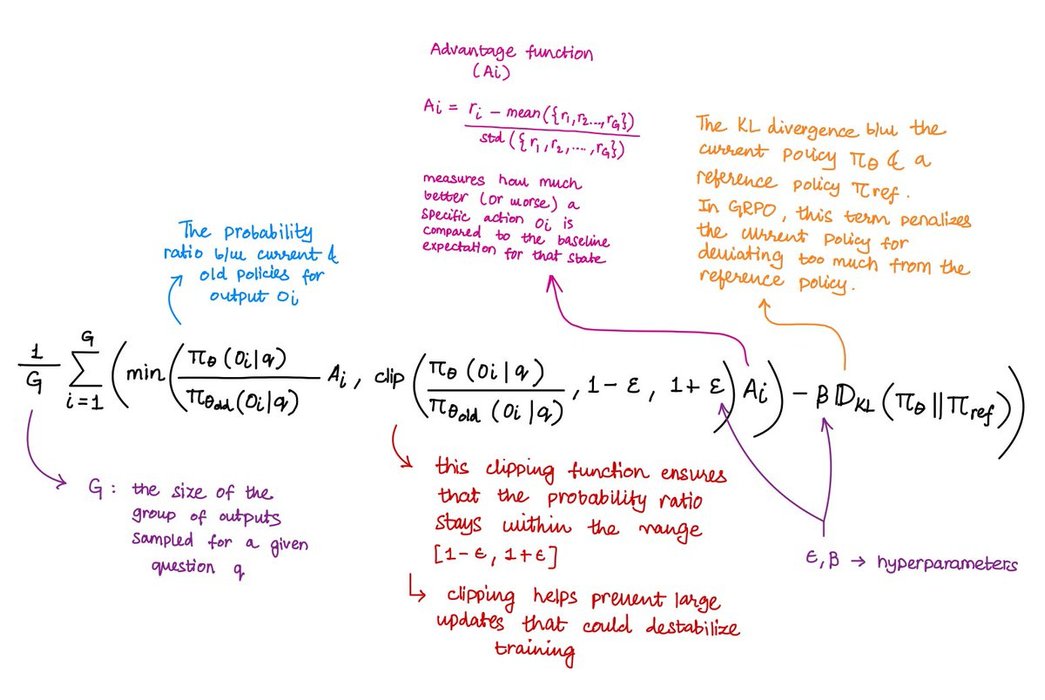 Advantage function
(Ai)
Ai = ri − mean({r1, r2..., rG})
std({r1, r2, ..., rG})
measures how much
better (or worse) a
specific action oi is
compared to the baseline
expectation for that state
The KL divergence b/w the
current policy πθ & a
reference policy πref.
In GRPO, this term penalizes
the current policy for
deviating too much from the
reference policy.
The probability
ratio b/w current &
old policies for
output oi
1/G ∑ i=1 G ( min ( πθ(oi|q) / πθold(oi|q) Ai, clip ( πθ(oi|q) / πθold(oi|q), 1 − ε, 1 + ε ) Ai ) − β 𝔻KL (πθ || πref) )
G: the size of the
group of outputs
sampled for a given
question q
this clipping function ensures
that the probability ratio
stays within the range
[1 − ε, 1 + ε]
↳ clipping helps prevent large
updates that could destabilize
training
ε, β → hyperparameters